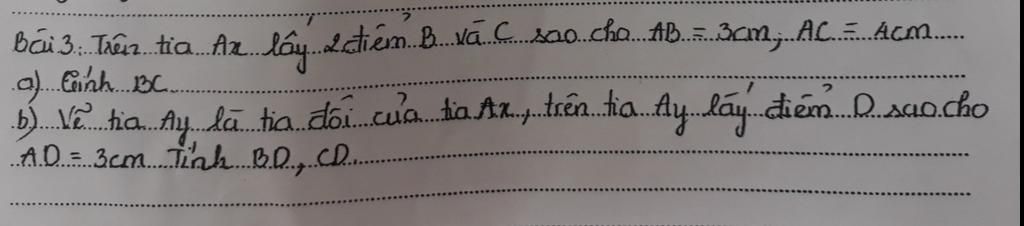 Bài 3. Trên tia Ax lấy 2 điểm B và C sao cho AB = 3cm, AC = 4cm
a) Tính BC
b) Vẽ tia Ay là tia đối của tia Ax, trên tia Ay lấy điểm D sao cho
AD = 3cm Tính BD, CD.